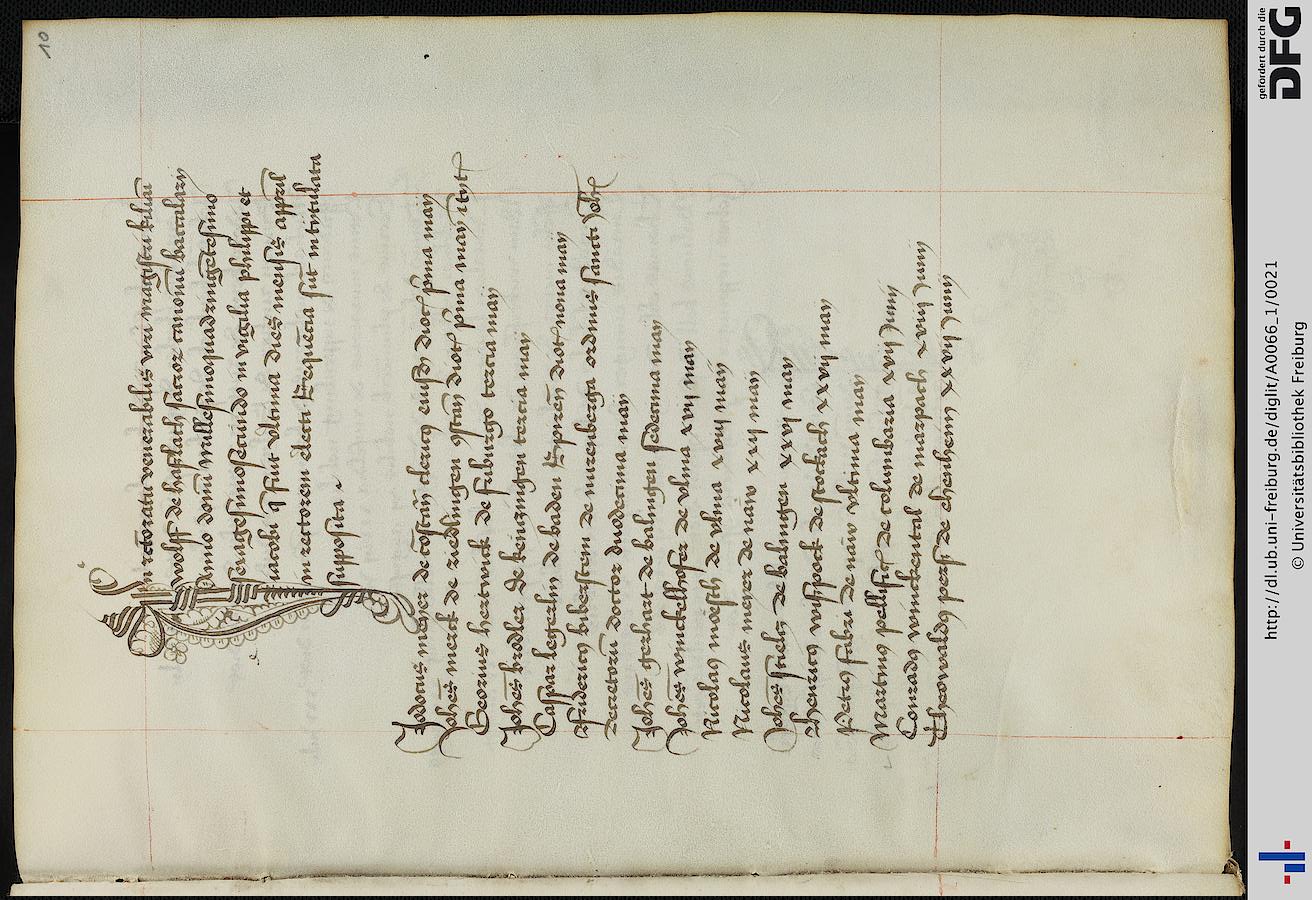 10
In rectoratu venerabilis viri magistri kiliani
wolff de haslach sacrorum canonum baccalarij
Anno domini Millesimoquadringentesimo
sexagesimosecundo in vigilia philippi et
iacobi que fuit vltima dies mensis apprilis
in rectorem electi Sequencia sunt intitulata
supposita
Jodocus meyer de constan clericus eiusdem dioc prima maij
Johes merck de riedlingen constan dioc prima maij
Georius hertwick de friburgo tercia maij
Johes brdler de kenzingen tercia maij
Caspar legerlin de baden Spiren dioc nona maij
Fridericus biberstein de nurenberga ordinis sancti
decretoru doctor duodecima maij
Johes gerhart de balingen sedecima maij
Johes winckelhofer de vlma xvij maij
Nicolaus mösch de vlma xviij maij
Nicolaus meyer de naw xxij maij
Johes stieliz de balingen xxvj maij
Henricus wisspock de stockach xxvij maij
Petrus fabri de naw vltima maij
Martinus pellific de columbaria xvij Junij
Conradus winckental de marpach xviij Junij
Theowaldus pers de ehenheim xxvij Junij
gefördert durch die
DFG
http://dl.ub.uni-freiburg.de/diglit/A0066_1/0021
© Universitätsbibliothek Freiburg